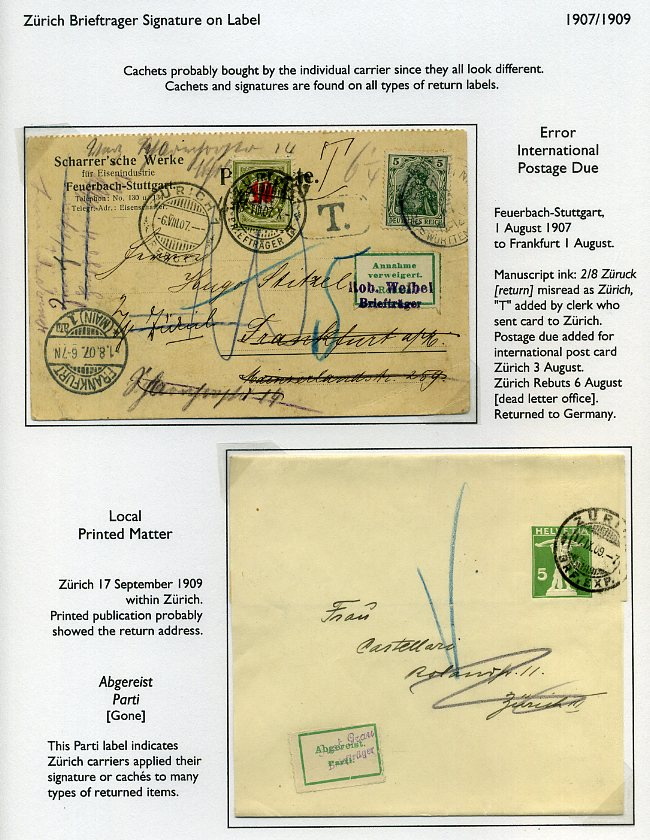 Zürich Brieftrager Signature on Label
1907/1909
Cachets probably bought by the individual carrier since they all look different.
Cachets and signatures are found on all types of return labels.
Error
International
Postage Due
Feuerbach-Stuttgart,
1 August 1907
to Frankfurt 1 August.
Manuscript ink: 2/8 Züruck
[return] misread as Zürich,
"T" added by clerk who
sent card to Zürich.
Postage due added for
international post card
Zürich 3 August.
Zürich Rebuts 6 August
[dead letter office].
Returned to Germany.
Scharrer'sche Werke
für Eisenindustrie
Feuerbach-Stuttgart
Telephon: No. 130 u.
Telegr.-Adr.:
ZÜRICH 1
-6.VIII.07.
BRIEFTRÄGER
T.
5 5
DEUTSCHES REICH
Annahme
verweigert.
Rob. Weibel
Briefträger
Herrn
Hugo Stitzel
Frankfurt a/M.
FRANKFURT (MAIN) 1
1.8.07. 6-7N
Local
Printed Matter
Zürich 17 September 1909
within Zürich.
Printed publication probably
showed the return address.
Abgereist
Parti
[Gone]
This Parti label indicates
Zürich carriers applied their
signature or cachés to many
types of returned items.
HELVETIA
5
ZÜRI
IX.09.-7
BRF. EXP.
Frau
Castellari
Rolandstr. 11.
Zürich
Abgereist.
Parti.
Briefträger